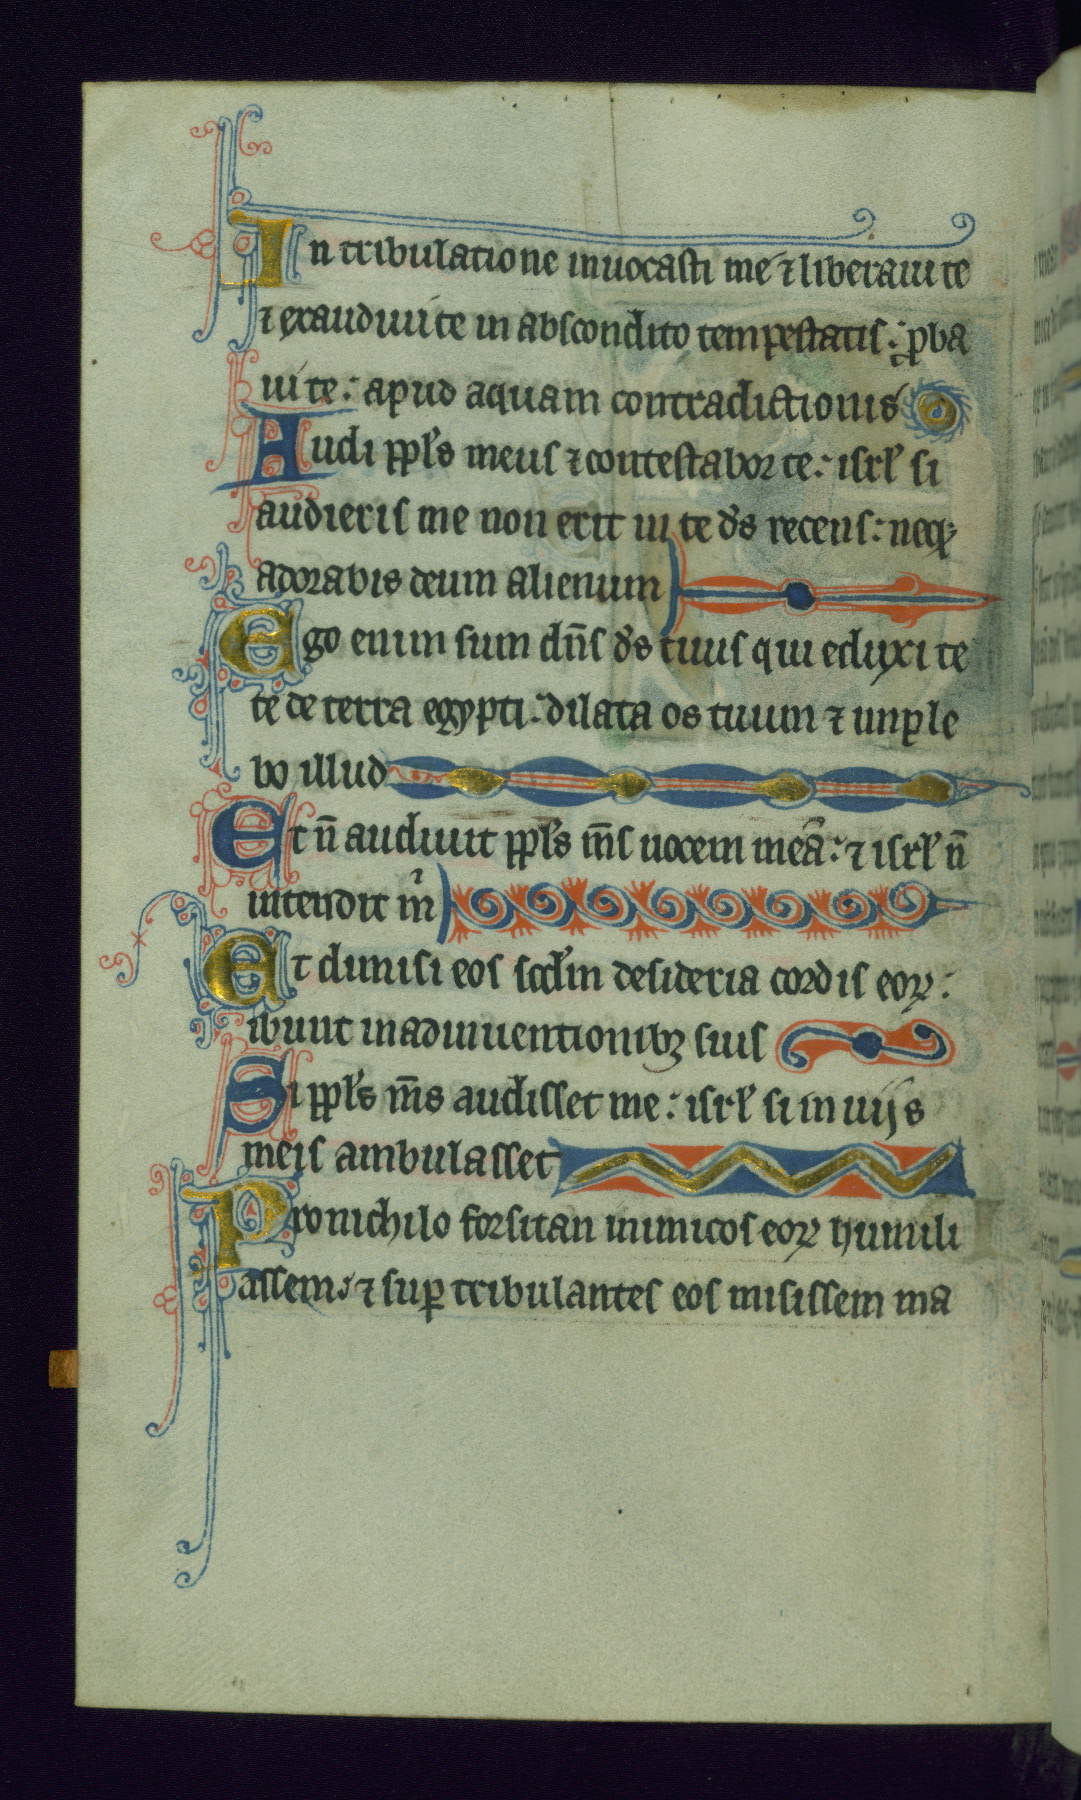 In tribulatione inuocasti me ⁊ liberaui te
⁊ exaudiui te in abscondito tempestatis: ꝓba
ui te: apud aquam contradictionis
Audi ppl̄s meus ⁊ contestabor te: isrl̄ si
audieris me non erit in te ds̄ recens: neqꝫ
adorabis deum alienum
Ego enim sum dn̄s ds̄ tuus qui eduxi te
te de terra egypti: dilata os tuum ⁊ unple
bo illud
Et n̄ audiuit ppl̄s m̄s uocem meā: ⁊ isrl̄ n̄
intendit m̄
Et dimisi eos scdm̄ desideria cordis eoꝝ:
ibunt in adinuentionibꝫ suis
Si ppl̄s m̄s audisset me: isrl̄ si in uijs
meis ambulasset
Pro nichilo forsitan inimicos eoꝝ humili
assem: ⁊ suꝑ tribulantes eos misissem ma